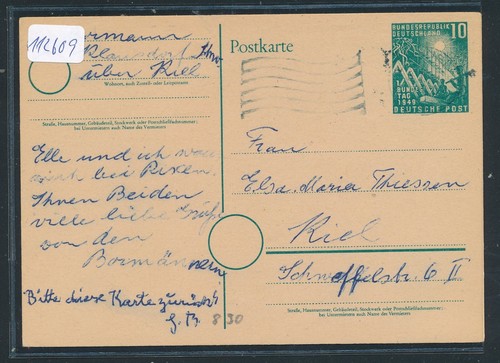 112609
Bormann
Klausdorf
über Kiel
Wohnort, auch Zustell- oder Leitpostamt
Straße, Hausnummer, Gebäudeteil, Stockwerk oder Postschließfachnummer;
bei Untermietern auch Name des Vermieters
Elle und ich
sind bei
Ihnen Beiden
viele liebe Grüße
von den
Bormännern
Bitte diese Karte zurück
G. B.
830
Postkarte
BUNDESREPUBLIK 10
DEUTSCHLAND
1.
BUNDES
TAG
1949
DEUTSCHE POST
Frau
Elsa. Maria Thiessen
Kiel
Scheffelstr. 6 II
Straße, Hausnummer, Gebäudeteil, Stockwerk oder Postschließfachnummer;
bei Untermietern auch Name des Vermieters